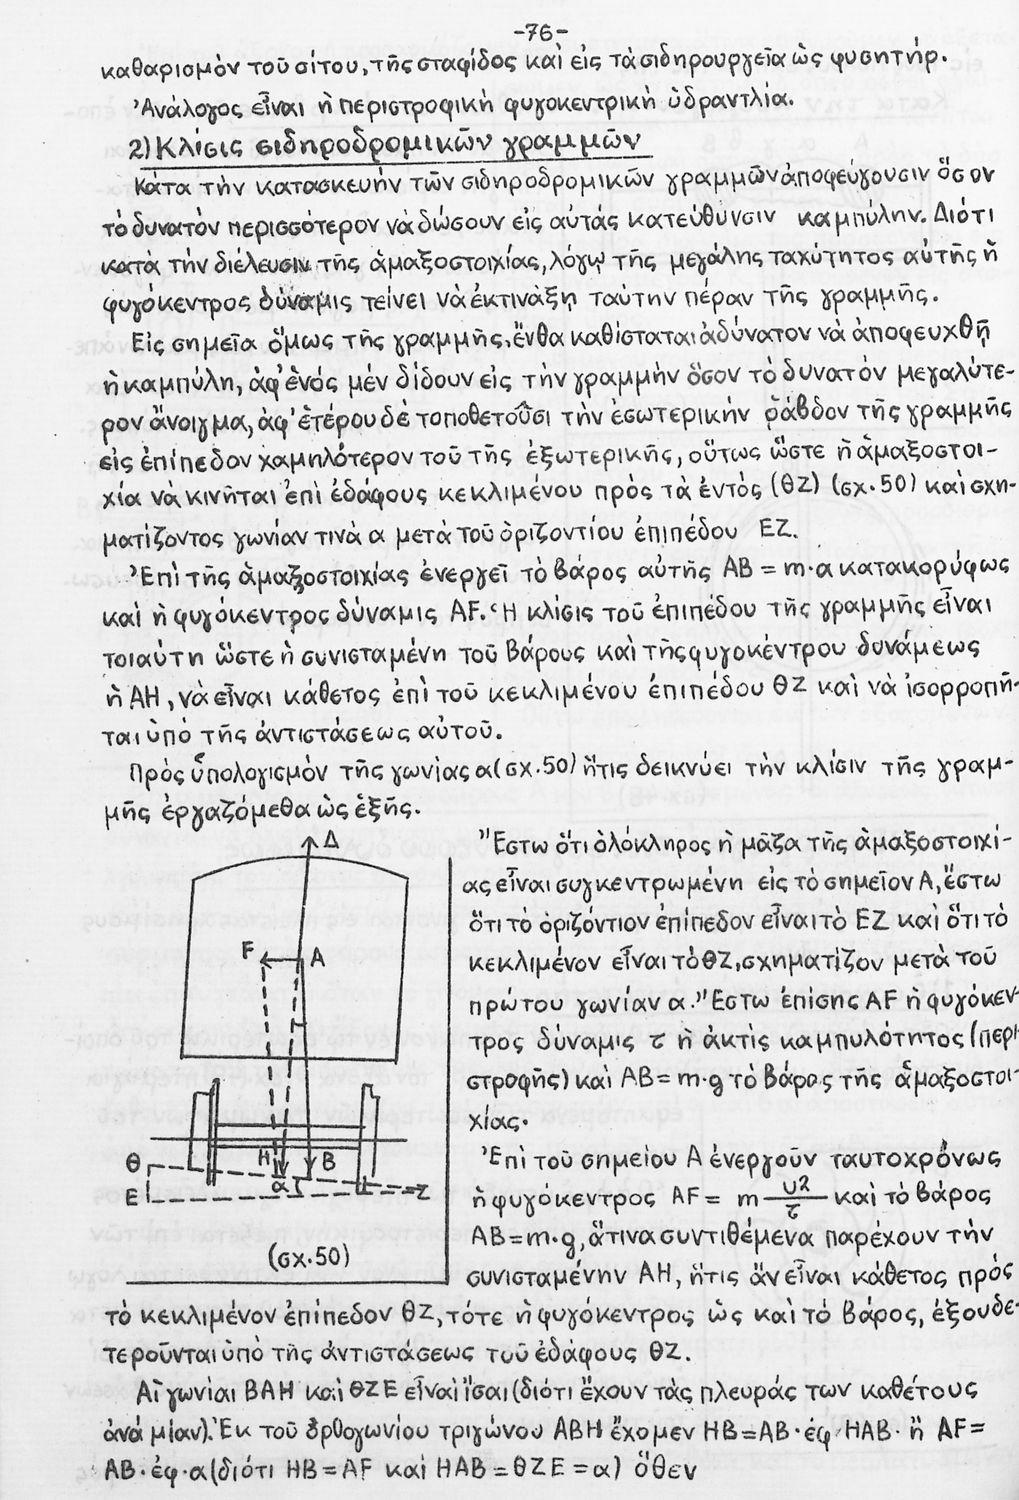 -76-
καθαρισμὸν τοῦ σίτου, τῆς σταφίδος καὶ εἰς τὰ σιδηρουργεῖα ὡς φυσητήρ.
Ἀνάλογος εἶναι ἡ περιστροφικὴ φυγοκεντρικὴ ὑδραντλία.
2) Κλίσις σιδηροδρομικῶν γραμμῶν
Κατα τὴν κατασκευὴν τῶν σιδηροδρομικῶν γραμμῶν ἀποφεύγουσιν ὅσον
τὸ δυνατὸν περισσότερον νὰ δώσουν εἰς αὐτάς κατεύθυνσιν καμπύλην. Διότι
κατὰ τὴν διέλευσιν τῆς ἁμαξοστοιχίας, λόγῳ τῆς μεγάλης ταχύτητος αὐτῆς ἡ
φυγόκεντρος δύναμις τείνει νὰ ἐκτινάξῃ ταύτην πέραν τῆς γραμμῆς.
Εἰς σημεῖα ὅμως τῆς γραμμῆς, ἔνθα καθίσταται ἀδύνατον νὰ ἀποφευχθῇ
ἡ καμπύλη, ἀφ' ἑνός μέν δίδουν εἰς τὴν γραμμὴν ὅσον τὸ δυνατὸν μεγαλύτε-
ρον ἄνοιγμα, ἀφ' ἑτέρου δὲ τοποθετοῦσι τὴν ἐσωτερικὴν ῥάβδον τῆς γραμμῆς
εἰς ἐπίπεδον χαμηλότερον τοῦ τῆς ἐξωτερικῆς, οὕτως ὥστε ἡ ἁμαξοστοι-
χία νὰ κινῆται ἐπὶ ἐδάφους κεκλιμένου πρὸς τὰ ἐντὸς (ΘΖ) (σχ.50) καὶ σχη-
ματίζοντος γωνίαν τινὰ α μετὰ τοῦ ὁριζοντίου ἐπιπέδου ΕΖ.
Ἐπὶ τῆς ἁμαξοστοιχίας ἐνεργεῖ τὸ βάρος αὐτῆς ΑΒ = m·α κατακορύφως
καὶ ἡ φυγόκεντρος δύναμις AF. Ἡ κλίσις τοῦ ἐπιπέδου τῆς γραμμῆς εἶναι
τοιαύτη ὥστε ἡ συνισταμένη τοῦ βάρους καὶ τῆς φυγοκέντρου δυνάμεως
ἡ ΑΗ, νὰ εἶναι κάθετος ἐπὶ τοῦ κεκλιμένου ἐπιπέδου ΘΖ καὶ νὰ ἰσορροπῆ-
ται ὑπὸ τῆς ἀντιστάσεως αὐτοῦ.
Πρὸς ὑπολογισμὸν τῆς γωνίας α (σχ.50) ἥτις δεικνύει τὴν κλίσιν τῆς γραμ-
μῆς ἐργαζόμεθα ὡς ἑξῆς.
Ἔστω ὅτι ὁλόκληρος ἡ μᾶζα τῆς ἁμαξοστοιχί-
ας εἶναι συγκεντρωμένη εἰς τὸ σημεῖον Α, ἔστω
ὅτι τὸ ὁριζόντιον ἐπίπεδον εἶναι τὸ ΕΖ καὶ ὅτι τὸ
κεκλιμένον εἶναι τὸ ΘΖ, σχηματίζον μετὰ τοῦ
πρώτου γωνίαν α. Ἔστω ἐπίσης AF ἡ φυγόκεν-
τρος δύναμις τ ἡ ἀκτὶς καμπυλότητος (περι
στροφῆς) καὶ ΑΒ = m·g τὸ βάρος τῆς ἁμαξοστοι-
χίας.
Ἐπὶ τοῦ σημείου Α ἐνεργοῦν ταυτοχρόνως
ἡ φυγόκεντρος AF = m υ2/τ καὶ τὸ βάρος
ΑΒ = m·g, ἅτινα συντιθέμενα παρέχουν τὴν
συνισταμένην ΑΗ, ἥτις ἂν εἶναι κάθετος πρὸς
τὸ κεκλιμένον ἐπίπεδον ΘΖ, τότε ἡ φυγόκεντρος ὡς καὶ τὸ βάρος, ἐξουδε-
τεροῦνται ὑπὸ τῆς ἀντιστάσεως τοῦ ἐδάφους ΘΖ.
Αἱ γωνίαι ΒΑΗ καὶ ΘΖΕ εἶναι ἴσαι (διότι ἔχουν τὰς πλευράς των καθέτους
ἀνὰ μίαν). Ἐκ τοῦ ὀρθογωνίου τριγώνου ΑΒΗ ἔχομεν ΗΒ = ΑΒ·ἐφ ΗΑΒ· ἢ AF =
ΑΒ·ἐφ·α (διότι ΗΒ = AF καὶ ΗΑΒ = ΘΖΕ = α) ὅθεν
Δ
F
Α
Η
Β
Θ
α
Ε
Ζ
(σχ.50)